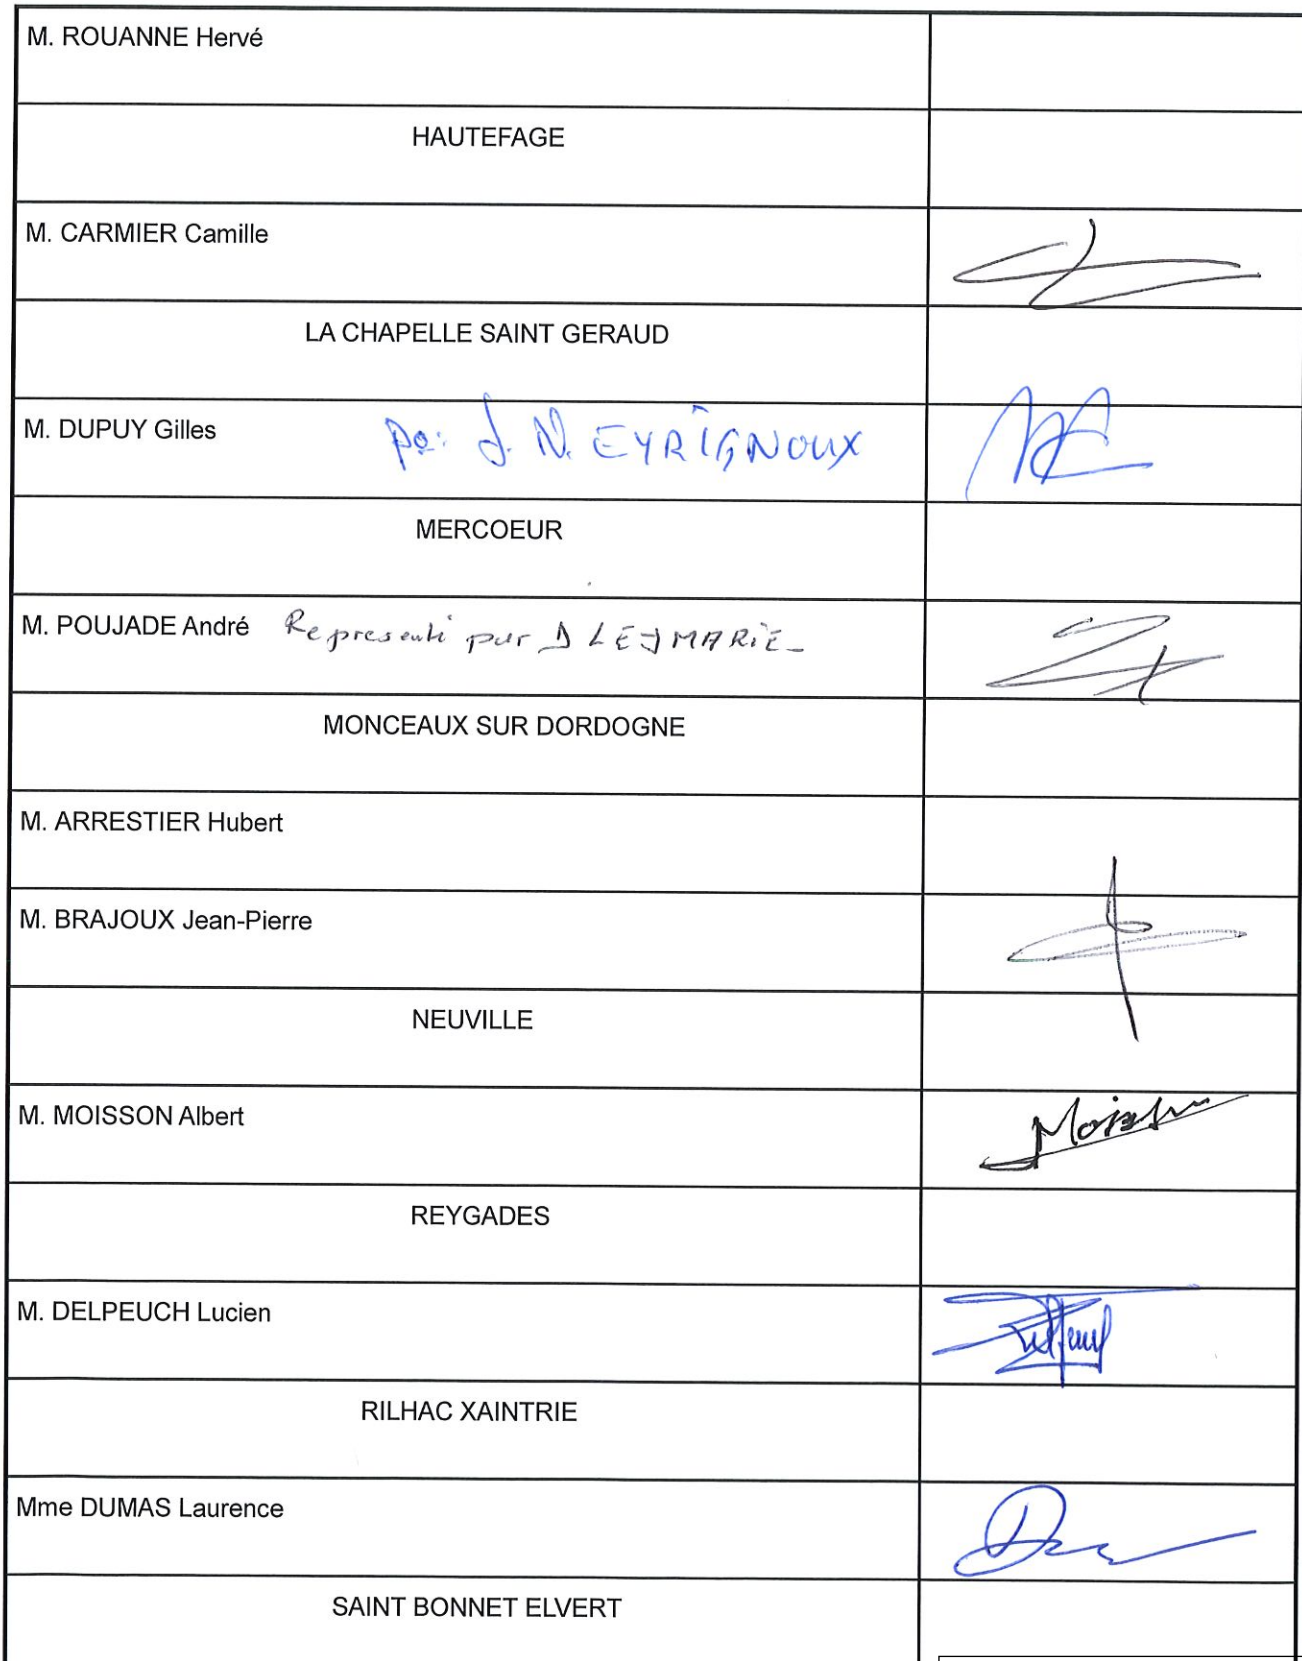 M. ROUANNE Hervé
HAUTEFAGE
M. CARMIER Camille
LA CHAPELLE SAINT GERAUD
M. DUPUY Gilles po: J. N. EYRIGNOUX
MERCOEUR
M. POUJADE André Representé par D LEYMARIE
MONCEAUX SUR DORDOGNE
M. ARRESTIER Hubert
M. BRAJOUX Jean-Pierre
NEUVILLE
M. MOISSON Albert
REYGADES
M. DELPEUCH Lucien
RILHAC XAINTRIE
Mme DUMAS Laurence
SAINT BONNET ELVERT